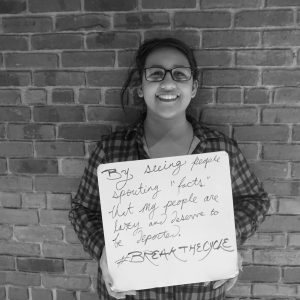 By seeing people
spouting "facts"
that my people are
lazy and deserve to
be deported.
#BREAKTHECYCLE